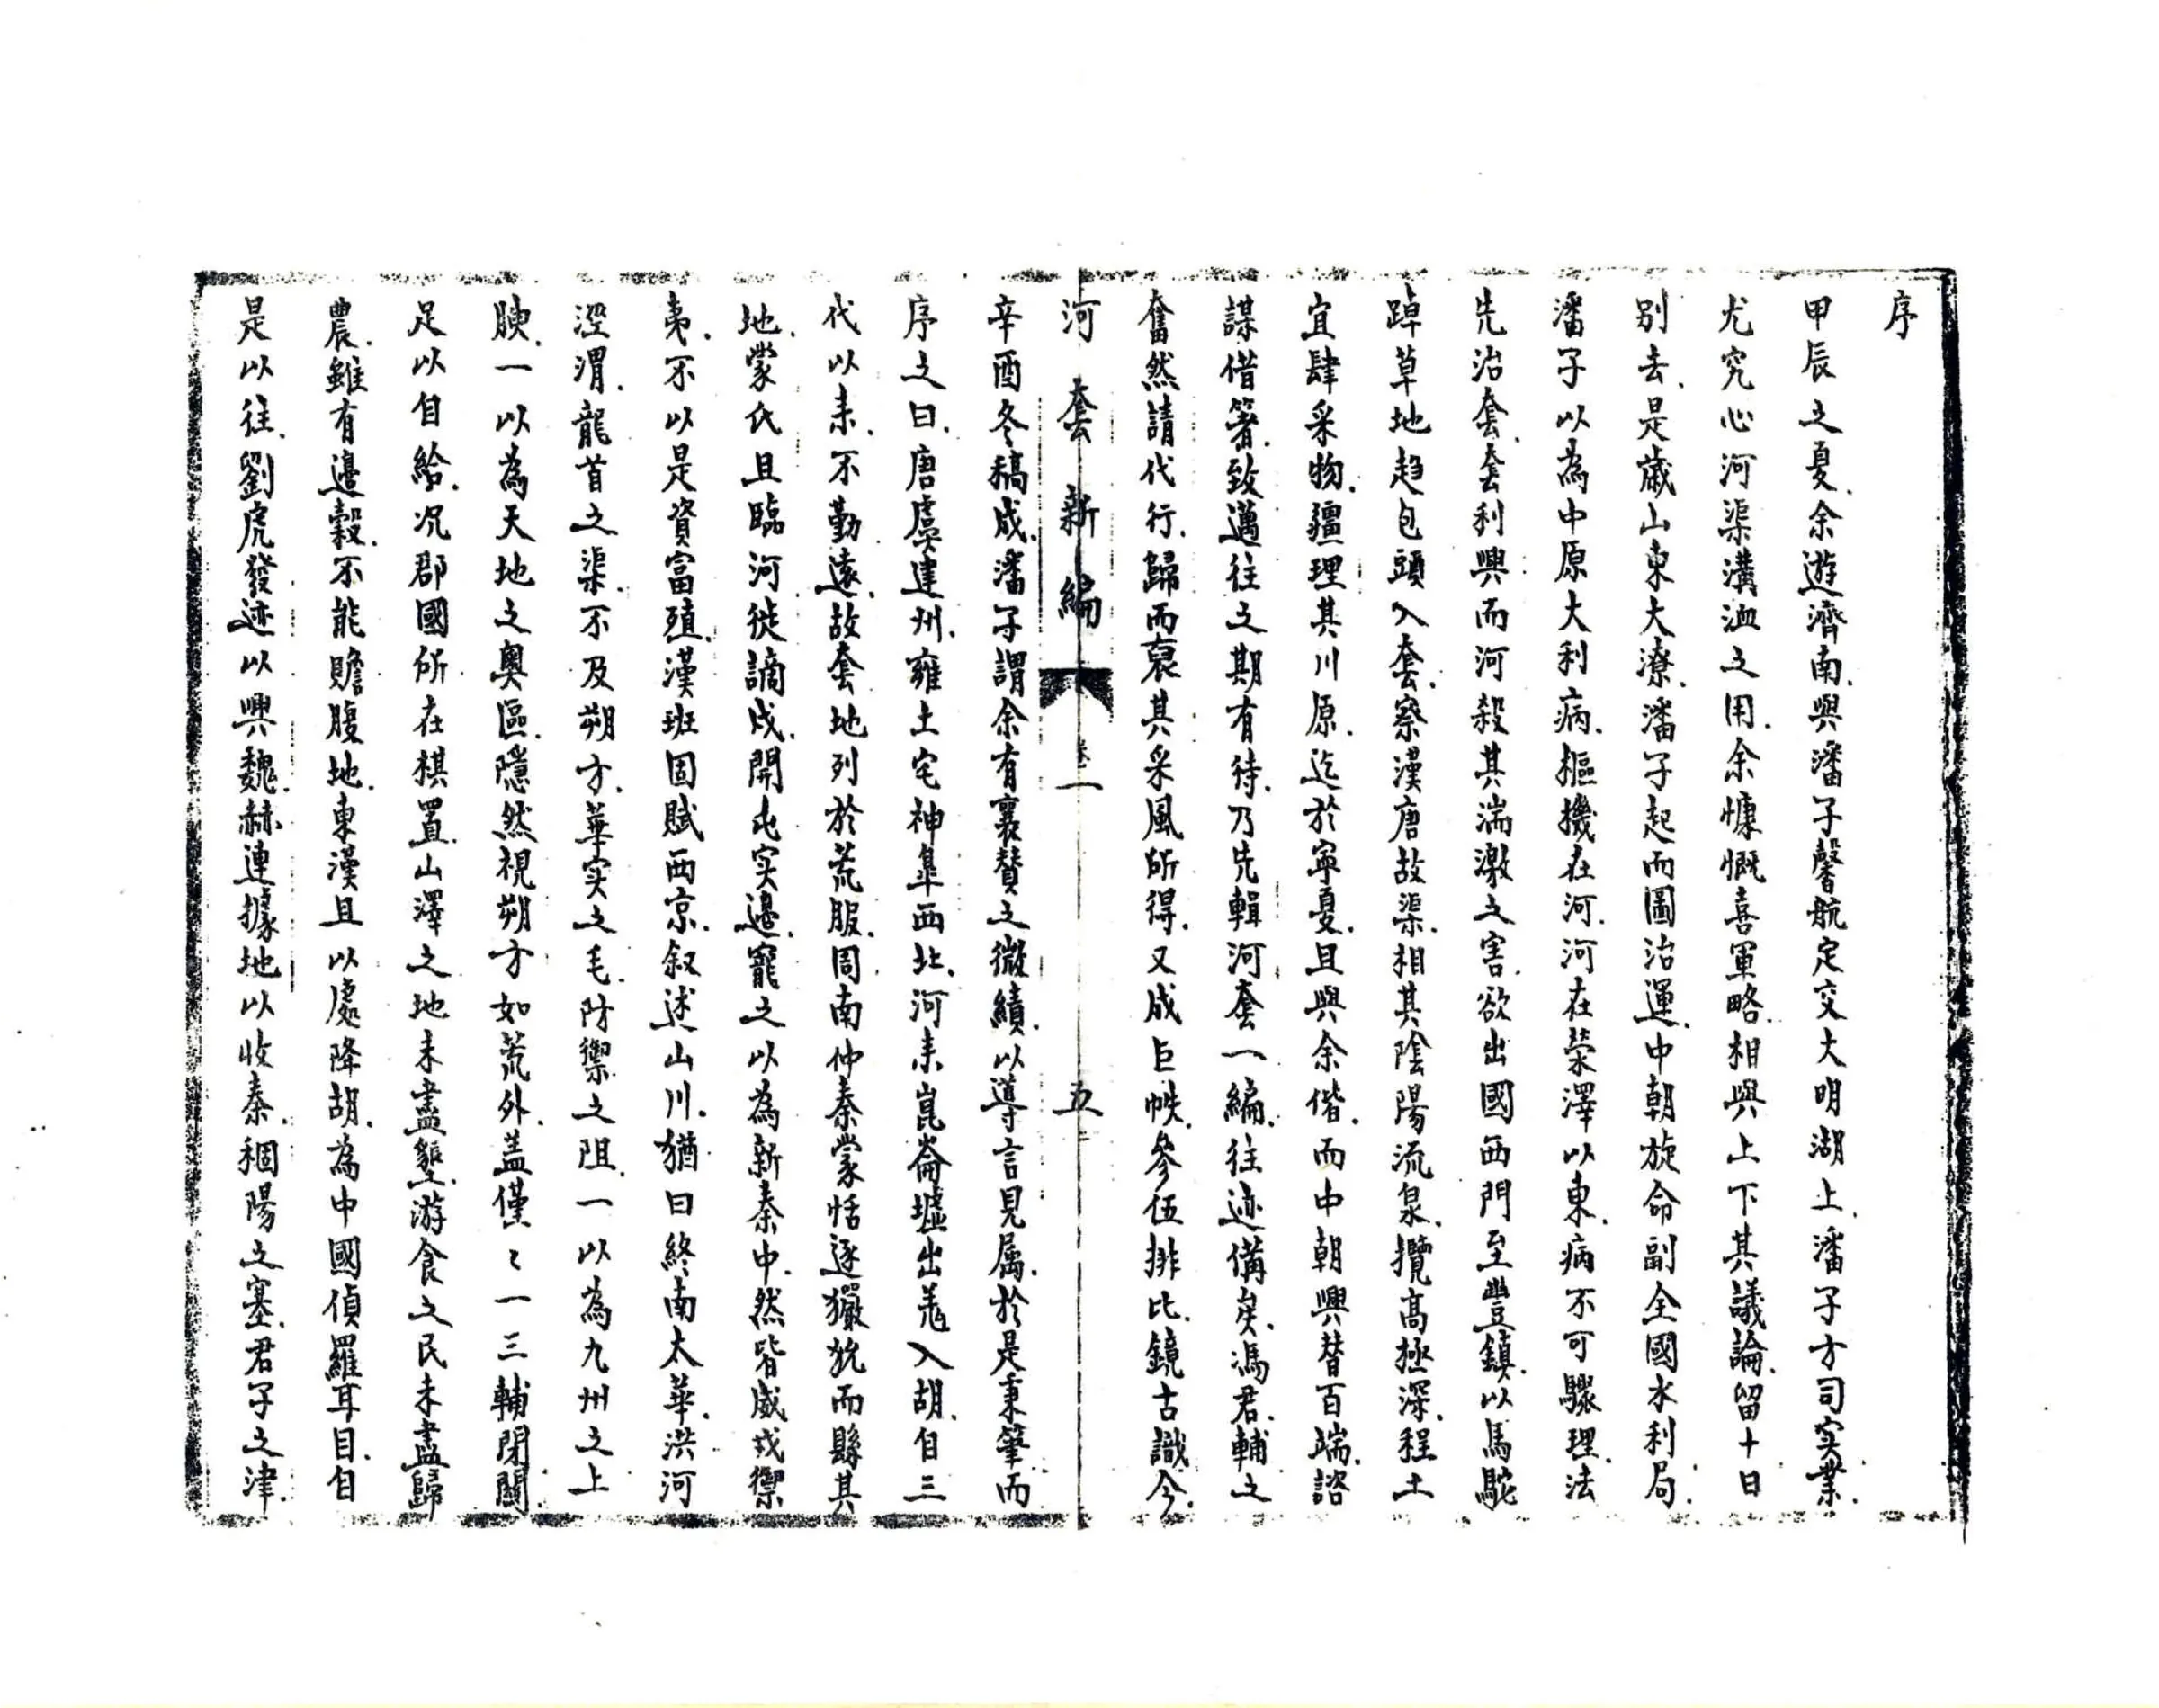 序
甲辰之夏.余遊濟南.與潘子馨航定交大明湖上.潘子方司实業.
尤究心河渠溝洫之用.余慷慨喜軍略.相與上下其議論.留十日
别去.是歲山東大潦.潘子起而圖治運.中朝旋命副全國水利局.
潘子以為中原大利病.樞機在河.河在滎澤以東.病不可驟理.法
先治套.套利興而河殺其湍激之害.欲出國西門至豐鎮.以馬駝
踔草地趋包頭入套.察漢唐故渠.相其陰陽流泉.攬高極深.程土
宜肆采物.疆理其川原.迄於寧夏.且與余偕.而中朝興替百端.諮
謀借箸.致邁往之期有待.乃先輯河套一編.往迹備矣.馮君.輔之
奮然請代行.歸而裒其采風所得.又成巨帙.參伍排比.鏡古識今.
河套新編 卷一 五
辛酉冬稿成.潘子謂余有襄赞之微績.以導言見属.於是秉筆而
序之曰.唐虞建州.雍土宅神皐西北.河来崑崙墟出羌入胡.自三
代以来.不勤遠.故套地列於荒服.周南仲秦蒙恬逐玁狁而縣其
地.蒙氏且臨河徙謫戍.開屯实邊.寵之以為新秦中.然皆威戎禦
夷.不以是資富殖.漢班固賦西京.叙述山川.猶曰終南太華.洪河
涇渭.龍首之渠.不及朔方.華实之毛.防禦之阻.一以為九州之上
腴.一以為天地之奥區.隱然視朔方如荒外.盖僅〻一三輔閉關.
足以自給.况郡國所在棋置.山澤之地未盡墾.游食之民未盡歸
農.雖有邊穀.不能贍腹地.東漢且以處降胡.為中國偵羅耳目.自
是以往.劉虎發迹以興魏.赫連據地以收秦.稒陽之塞.君子之津.